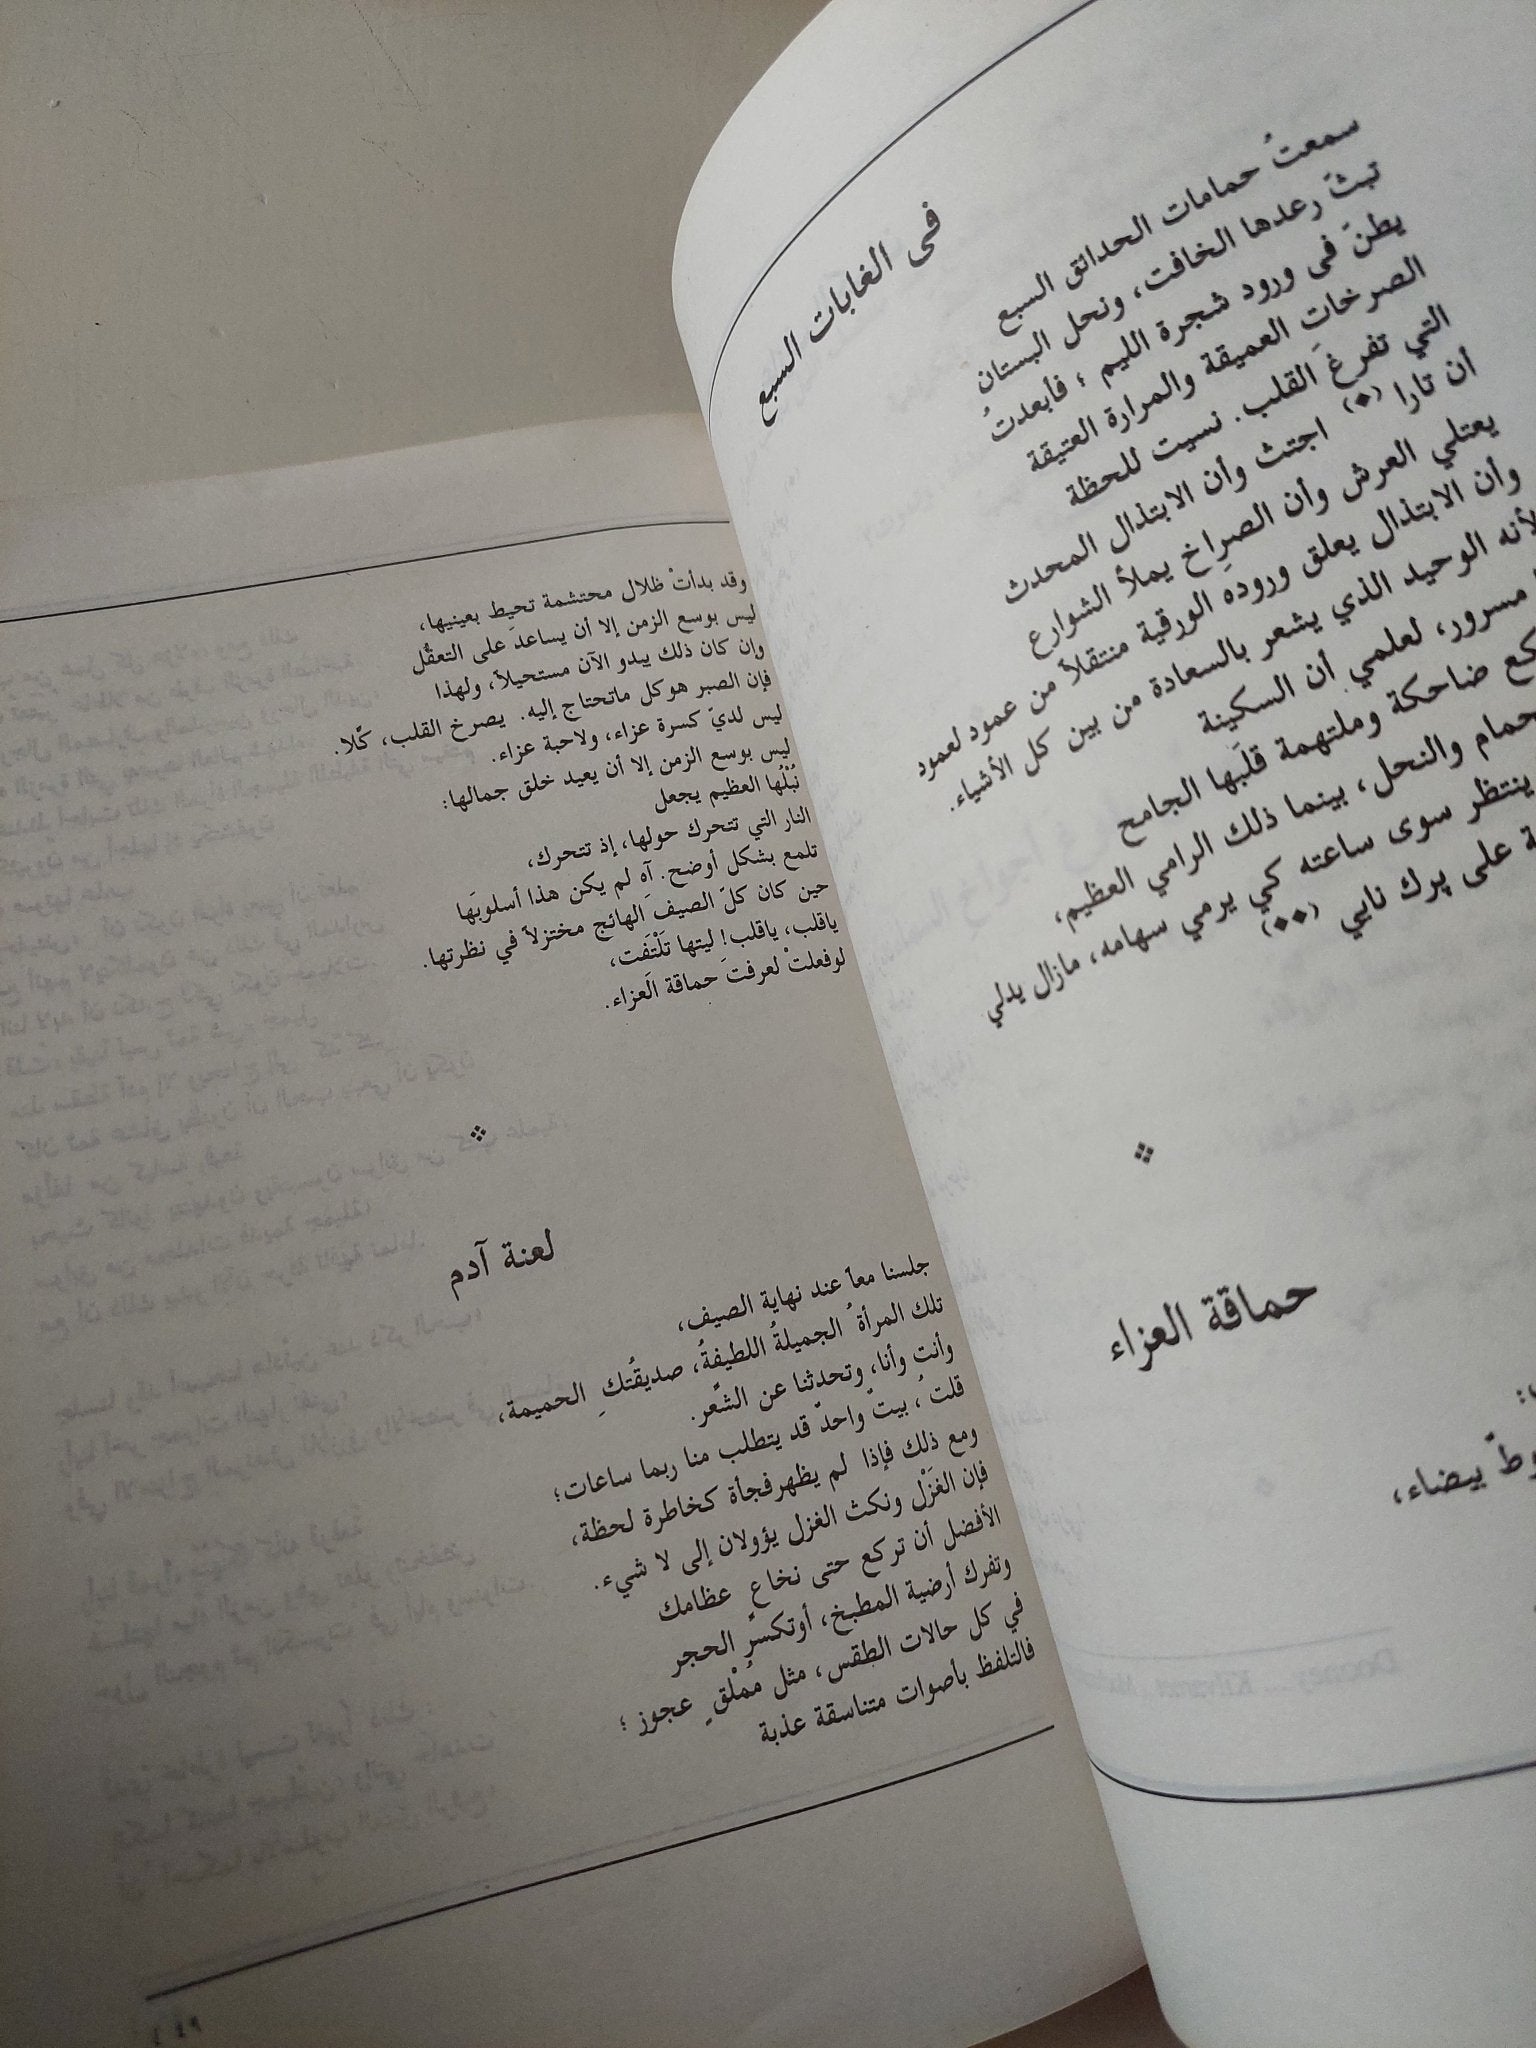 فى الغابات السبع
سمعتُ حمامات الحدائق السبع
تبثّ رعدها الخافت، ونحل البستان
يطنّ فى ورود شجرة الليم ؛ فأبعدتُ
الصرخاتِ العميقة والمرارة العتيقة
التي تفرغ القلب. نسيت للحظة
أن تارا (٭) اجتث وأن الابتذال المحدث
يعتلي العرش وأن الصراخ يملأ الشوارع
وأن الابتذال يعلق وروده الورقية منتقلاً من عمود لعمود
لأنه الوحيد الذي يشعر بالسعادة من بين كل الأشياء.
مسرور، لعلمي أن السكينة
ضاحكة وملتهمة قلَبها الجامح
حمام والنحل، بينما ذلك الرامي العظيم،
ينتظر سوى ساعته كي يرمي سهامه، مازال يدلي
على پرك نايي (٭٭)
حماقة العزاء
بيضاء،
وقد بدأتْ ظلال محتشمة تحيط بعينيها،
ليس بوسع الزمن إلا أن يساعدَ على التعقّل
وإن كان ذلك يبدو الآن مستحيلاً، ولهذا
فإن الصبر هو كل ماتحتاج إليه. يصرخ القلب، كّلا.
ليس لديّ كسرة عزاء، ولاحبة عزاء.
ليس بوسع الزمن إلا أن يعيد خلق جمالها:
نُبْلُها العظيم يجعل
النار التي تتحرك حولها، إذ تتحرك،
تلمع بشكل أوضح. آهِ لم يكن هذا أسلوبَها
حين كان كلّ الصيف الهائج مختزلاً في نظرتها.
ياقلب، ياقلب! ليتها تَلْتَفت،
لوفعلتْ لعرفتَ حماقة العزاء.
لعنة آدم
جلسنا معاً عند نهاية الصيف،
تلك المرأةُ الجميلةُ اللطيفةُ، صديقتُكِ الحميمة،
وأنت وأنا، وتحدثنا عن الشعْر.
قلتُ، بيتٌ واحدٌ قد يتطلب منا ربما ساعات؛
ومع ذلك فإذا لم يظهرفجأة كخاطرة لحظة،
فإن الغَزْل ونكث الغزل يؤولان إلى لا شيء.
الأفضل أن تركع حتى نخاعِ عظامك
وتفرك أرضية المطبخ، أوتكسرٍ الحجر
في كل حالات الطقس، مثل مُمْلقٍ عجوز ؛
فالتلفظ بأصوات متناسقة عذبة